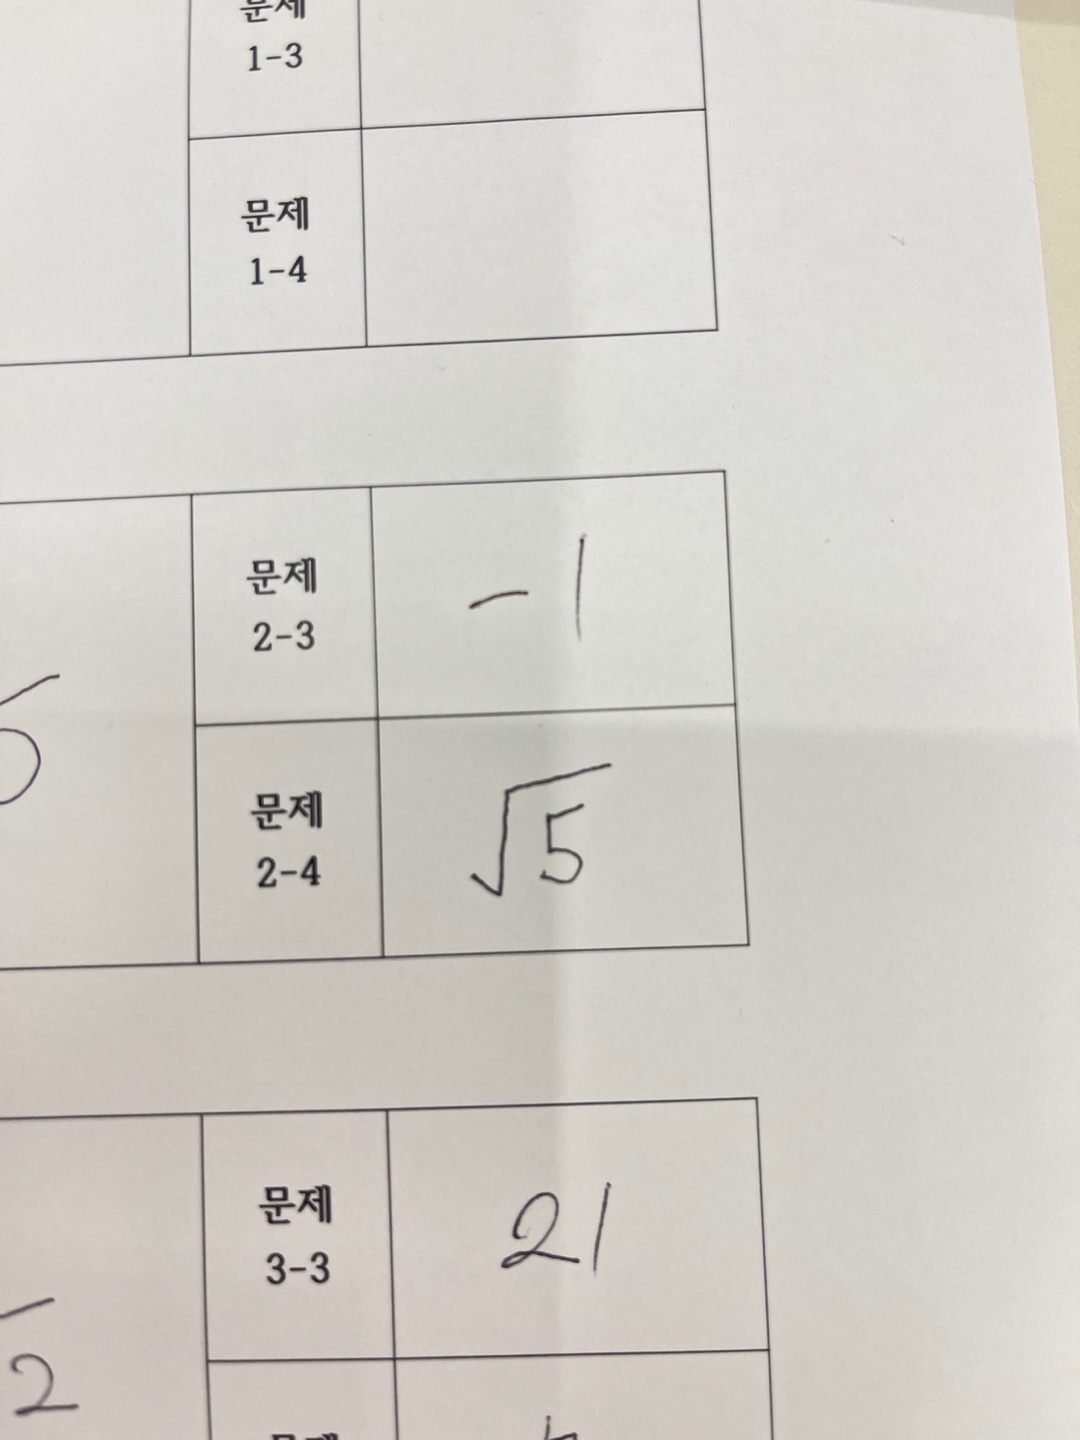 문제
1-3
문제
1-4
문제
2-3
-1
문제
2-4
√5
문제
3-3
21
2
문제